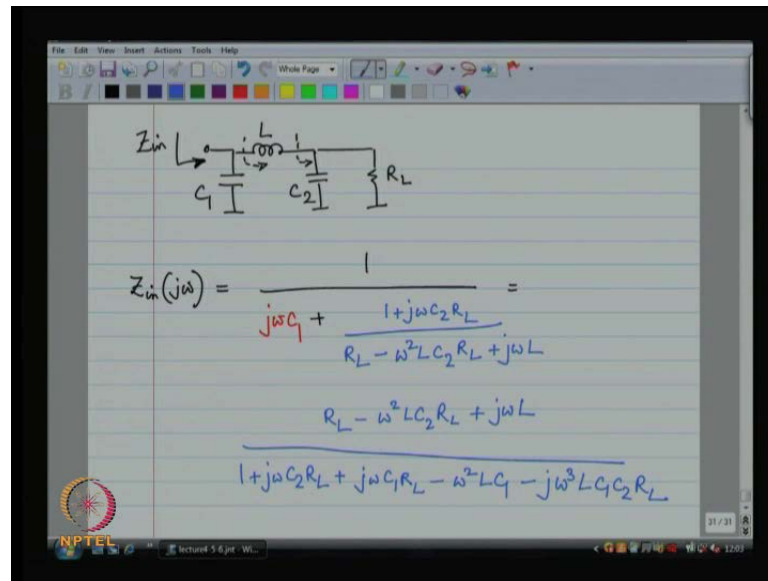 File Edit View Insert Actions Tools Help
Whole Page
B I
Zin
L
C1
C2
RL
Zin(jω) = 1 / (jωC1 + (1+jωC2RL) / (RL − ω²LC2RL + jωL)) =
RL − ω²LC2RL + jωL
1+jωC2RL + jωC1RL − ω²LC1 − jω³LC1C2RL
31/31
NPTEL
lecture4-5-6.jnt - Wi...
12:03